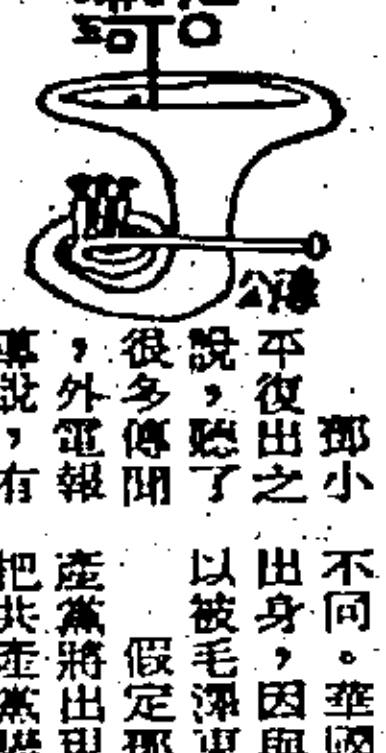 鄧小
平復出之
說，聽了
很多傳聞
，外電報
導說，有
不同。華國
出身，因與
以被毛澤東
假定那
產黨將出現
把共產黨